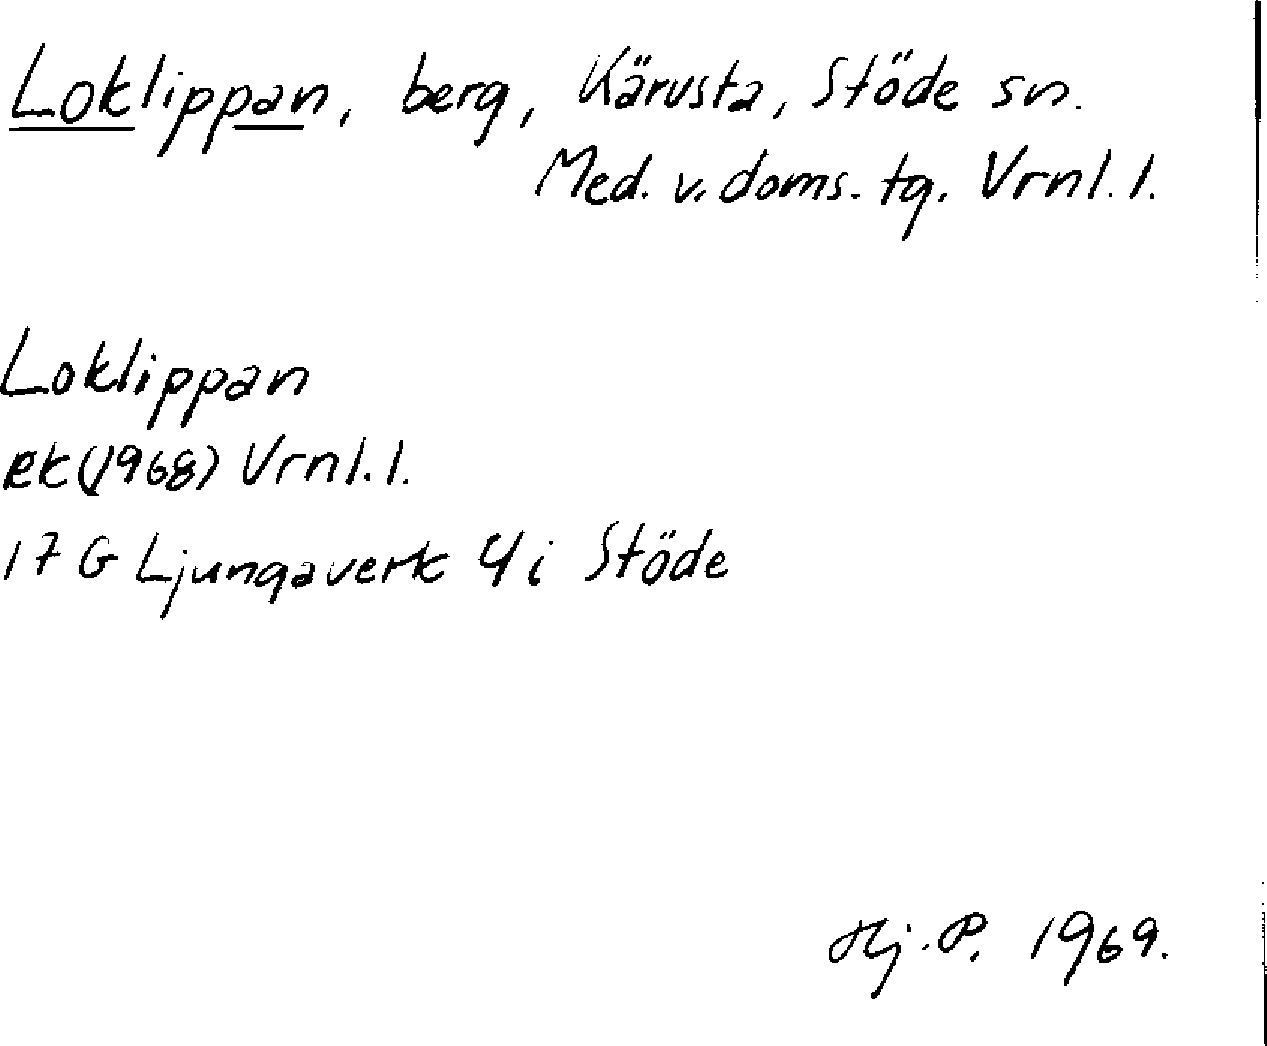 Loklippan, berg, Kärusta, Stöde sn.
Med. v. doms. tg. Vrnl. l.
Loklippan
RK (1968) Vrnl. l.
17 G Ljungaverk 4 i Stöde
Hj. P. 1969.